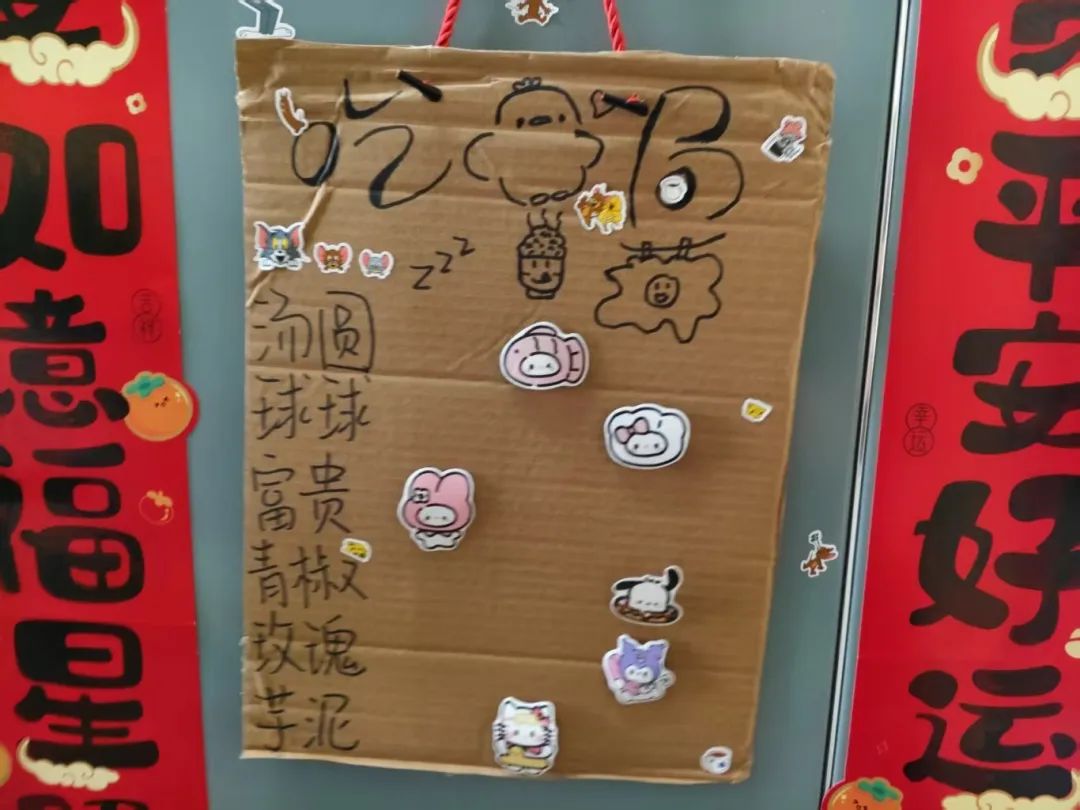 如意福星
吉祥
吃
zzz
汤圆
球球
富贵
青椒
玫瑰
芋泥
平安好运
幸运